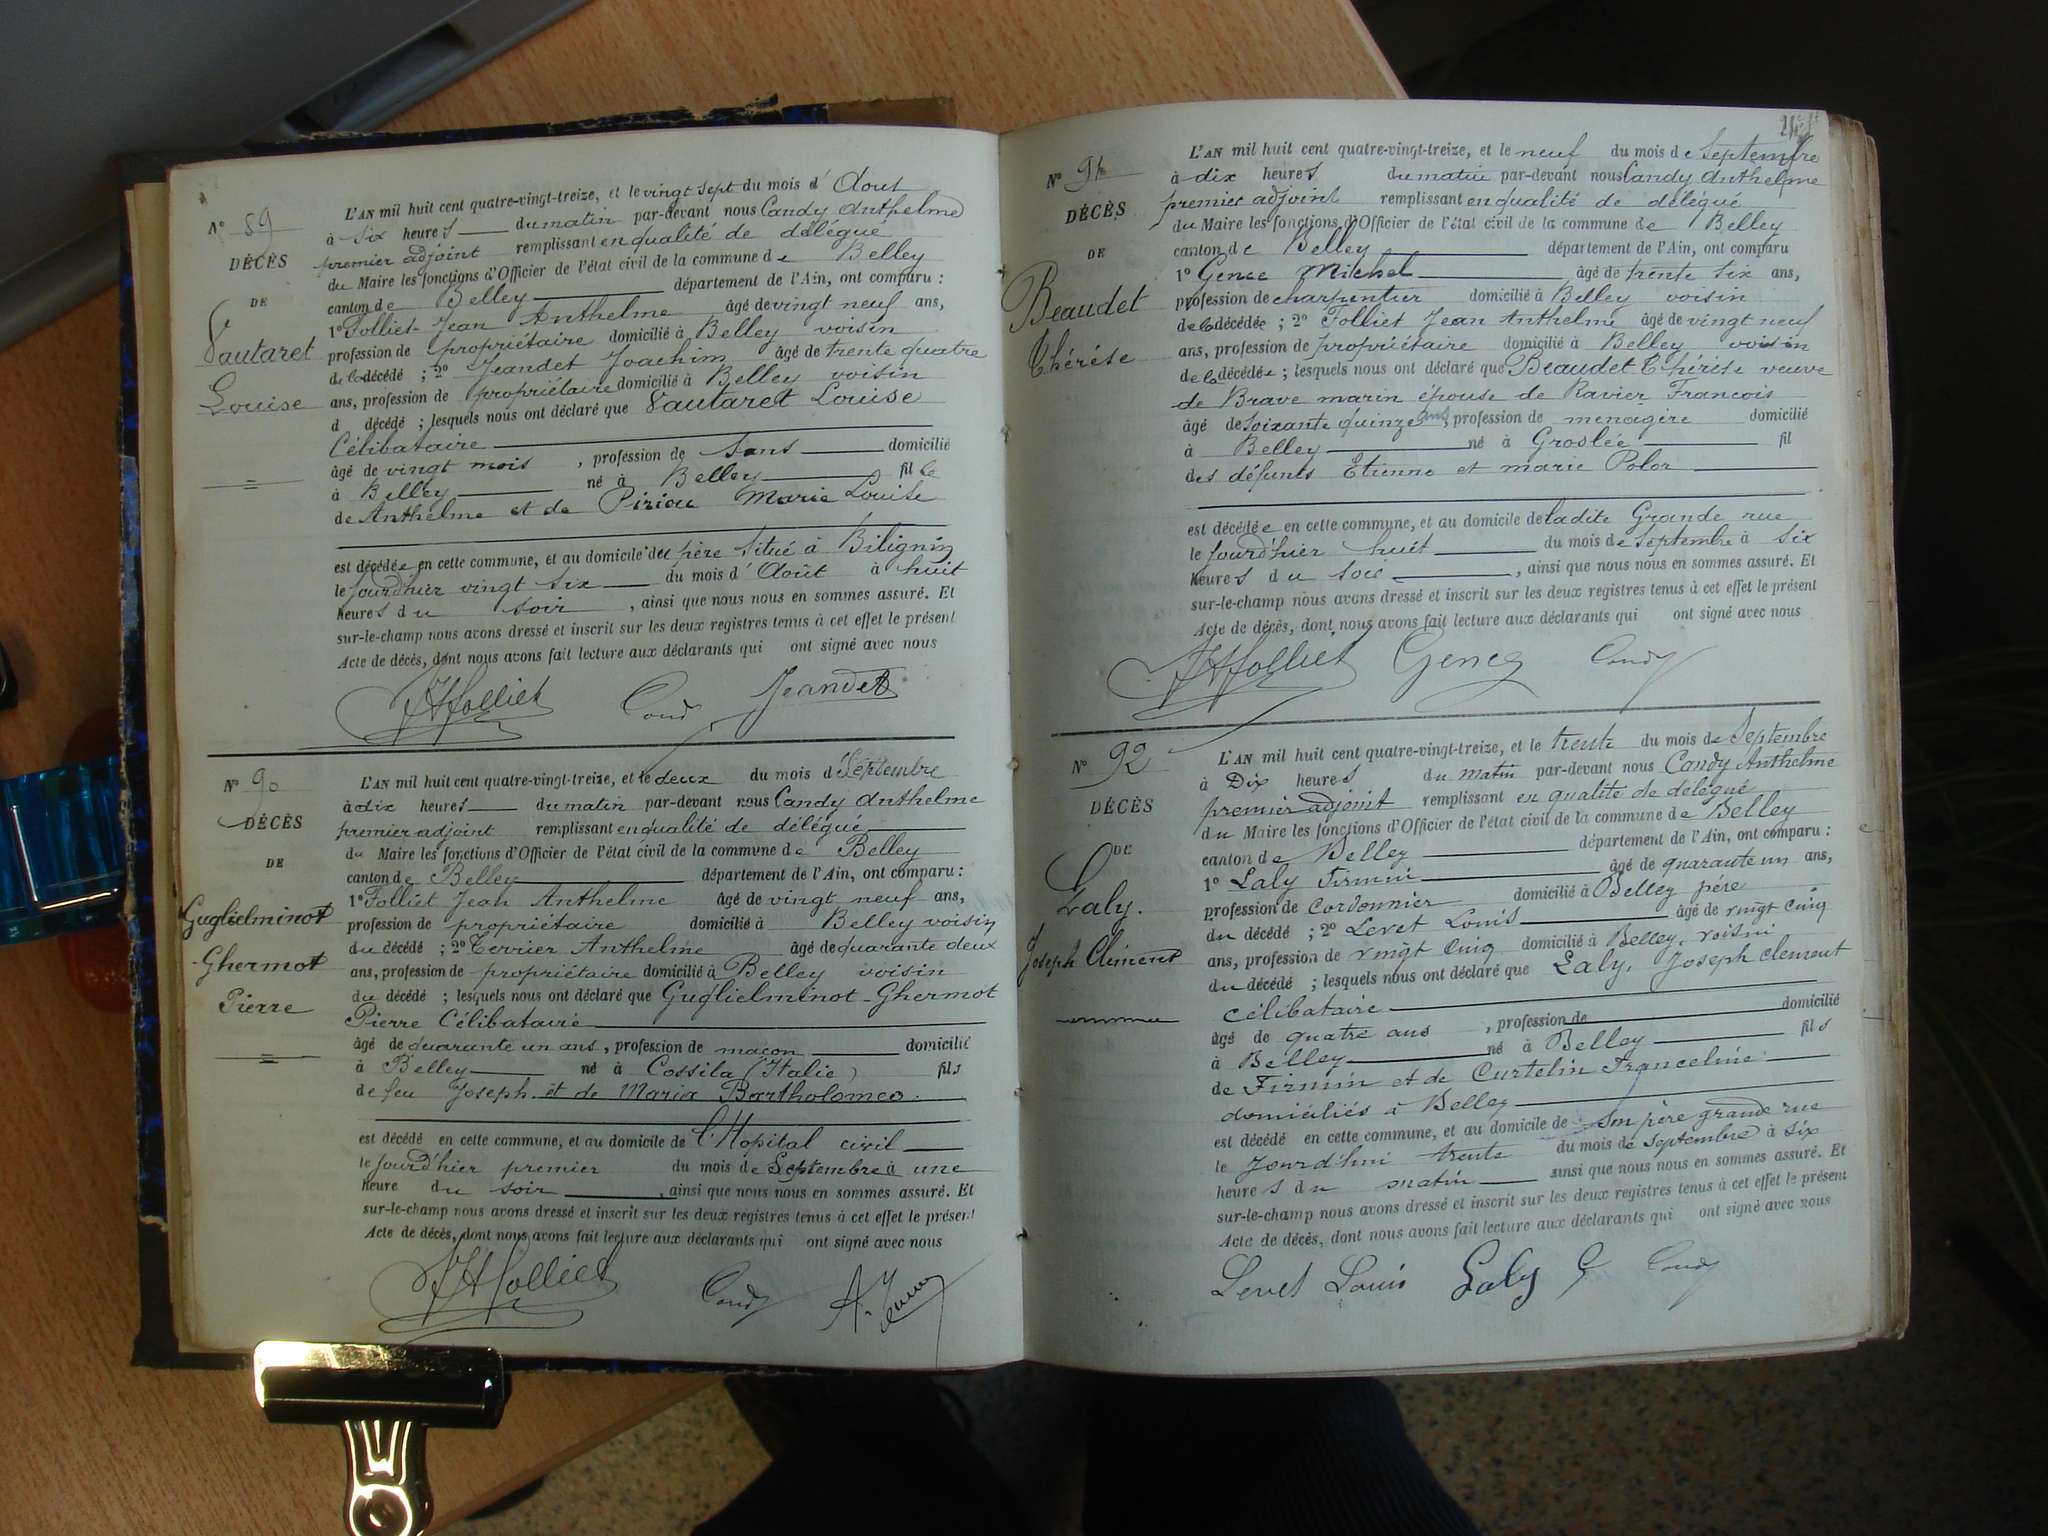 N° 89
DÉCÈS
DE
Vautaret
Louise
L'AN mil huit cent quatre-vingt-treize, et le vingt sept du mois d' Aout
à six heures du matin par-devant nous Candy Anthelme
premier adjoint remplissant en qualité de délégué
du Maire les fonctions d'Officier de l'état civil de la commune de Belley
canton de Belley département de l'Ain, ont comparu :
1° Folliet Jean Anthelme âgé de vingt neuf ans,
profession de propriétaire domicilié à Belley voisin
de la décédé ; 2° Jeandet Joachim âgé de trente quatre
ans, profession de propriétaire domicilié à Belley voisin
d décédé ; lesquels nous ont déclaré que Vautaret Louise
Célibataire
âgé de vingt mois , profession de Sans domicilié
à Belley né à Belley fille
de Anthelme et de Piriou Marie Louise
est décédée en cette commune, et au domicile du père situé à Bilignin
le jourd'hier vingt six du mois d' Août à huit
heures du soir , ainsi que nous nous en sommes assuré. Et
sur-le-champ nous avons dressé et inscrit sur les deux registres tenus à cet effet le présent
Acte de décès, dont nous avons fait lecture aux déclarants qui ont signé avec nous
JAFolliet Candy Jeandet
N° 90
DÉCÈS
DE
Guglielminot
Ghermot
Pierre
L'AN mil huit cent quatre-vingt-treize, et le deux du mois d Septembre
à dix heures du matin par-devant nous Candy Anthelme
premier adjoint remplissant en qualité de délégué
du Maire les fonctions d'Officier de l'état civil de la commune de Belley
canton de Belley département de l'Ain, ont comparu :
1° Folliet Jean Anthelme âgé de vingt neuf ans,
profession de propriétaire domicilié à Belley voisin
du décédé ; 2° Terrier Anthelme âgé de quarante deux
ans, profession de propriétaire domicilié à Belley voisin
du décédé ; lesquels nous ont déclaré que Guglielminot-Ghermot
Pierre Célibataire
âgé de quarante un ans, profession de maçon domicilié
à Belley né à Cossila (Italie) fils
de feu Joseph et de Maria Bartholomeo.
est décédé en cette commune, et au domicile de l'Hopital civil
le jourd'hier premier du mois de Septembre à une
heure du soir , ainsi que nous nous en sommes assuré. Et
sur-le-champ nous avons dressé et inscrit sur les deux registres tenus à cet effet le présent
Acte de décès, dont nous avons fait lecture aux déclarants qui ont signé avec nous
JAFolliet Candy
N° 91
DÉCÈS
DE
Beaudet
Thérèse
L'AN mil huit cent quatre-vingt-treize, et le neuf du mois de Septembre
à dix heures du matin par-devant nous Candy Anthelme
premier adjoint remplissant en qualité de délégué
du Maire les fonctions d'Officier de l'état civil de la commune de Belley
canton de Belley département de l'Ain, ont comparu
1° Gence Michel âgé de trente six ans,
profession de charpentier domicilié à Belley voisin
de la décédée ; 2° Folliet Jean Anthelme âgé de vingt neuf
ans, profession de propriétaire domicilié à Belley voisin
de la décédée ; lesquels nous ont déclaré que Beaudet Thérèse veuve
de Brave marin épouse de Ravier François
âgé de soixante quinze ans, profession de menagère domicilié
à Belley né à Groslée fil
des défunts Etienne et marie Polor
est décédée en cette commune, et au domicile de ladite Grande rue
le jourd'hier huit du mois de Septembre à six
heures du soir , ainsi que nous nous en sommes assuré. Et
sur-le-champ nous avons dressé et inscrit sur les deux registres tenus à cet effet le présent
Acte de décès, dont nous avons fait lecture aux déclarants qui ont signé avec nous
JAFolliet Gence Candy
N° 92
DÉCÈS
DE
Laly.
Joseph Clément
L'AN mil huit cent quatre-vingt-treize, et le trente du mois de Septembre
à Dix heures du matin par-devant nous Candy Anthelme
premier adjoint remplissant en qualité de délégué
du Maire les fonctions d'Officier de l'état civil de la commune de Belley
canton de Belley département de l'Ain, ont comparu :
1° Laly Firmin âgé de quarante un ans,
profession de Cordonnier domicilié à Belley père
du décédé ; 2° Levet Louis âgé de vingt cinq
ans, profession de vingt cinq domicilié à Belley, voisin
du décédé ; lesquels nous ont déclaré que Laly, Joseph clement
célibataire
âgé de quatre ans , profession de domicilié
à Belley né à Belley fils
de Firmin et de Curtelin Franceline
domiciliés à Belley
est décédé en cette commune, et au domicile de son père grande rue
le jourd'hui trente du mois de septembre à six
heures du matin ainsi que nous nous en sommes assuré. Et
sur-le-champ nous avons dressé et inscrit sur les deux registres tenus à cet effet le présent
Acte de décès, dont nous avons fait lecture aux déclarants qui ont signé avec nous
Levet Louis Laly Candy